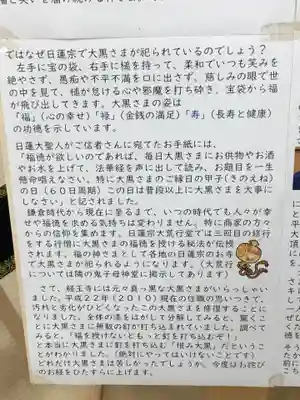 ではなぜ日蓮宗で大黒さまが祀られているのでしょう?
左手に宝の袋、右手に槌を持って、柔和でいつも笑みを
絶やさず、愚痴や不平不満を口に出さず、慈しみの眼で世
の中を見て、槌が怠ける心や邪魔を打ち砕き、宝袋から福
が飛び出してきます。大黒さまの姿は
「福」(心の幸せ)「禄」(金銭の満足)「寿」(長寿と健康)
の功徳を示しています。
日蓮大聖人がご信者さんに宛てたお手紙には、
「福徳が欲しいのであれば、毎日大黒さまにお供物やお酒
やお水を上げて、法華経を声に出して読み、お題目を一生
懸命唱えなさい。特に大黒さまのご縁日の甲子(きのえね)
の日(60日周期)この日は普段以上に大黒さまを大事に
しなさい」と記されました。
鎌倉時代から現在に至るまで、いつの時代でも人々が幸
せや福徳を求める気持ちは変わりません。特に商家の方々
からの信仰を集めます。日蓮宗大荒行堂では三回目の修行
をする行僧に大黒さまの福徳を授ける秘法が伝授
されます。福の神さまとして各地の日蓮宗のお寺
で大黒さまが祀られるようになります。(大荒行
については隣の鬼子母神堂に掲示してあります)
さて、経王寺には元々真っ黒な大黒さまがいらっしゃい
ました。平成22年(2010)現在の住職の思いつきで、
汚れと劣化がひどくなったこの大黒さまを修復することに
なりました。全体の墨をはがして分解してみると、驚くこ
とに大黒さまに無数の釘が打ち込まれていました。調べて
みると、「福を授けないともっと釘を打ち込むぞ!」
と本当に大黒さまに釘を打ち込む「恨み大黒」だということ
がわかりました。(絶対にやってはいけないことです)
どれだけ大黒さまは苦しかったでしょうか。今度はお詫び
のお経をひたすらに上げます。